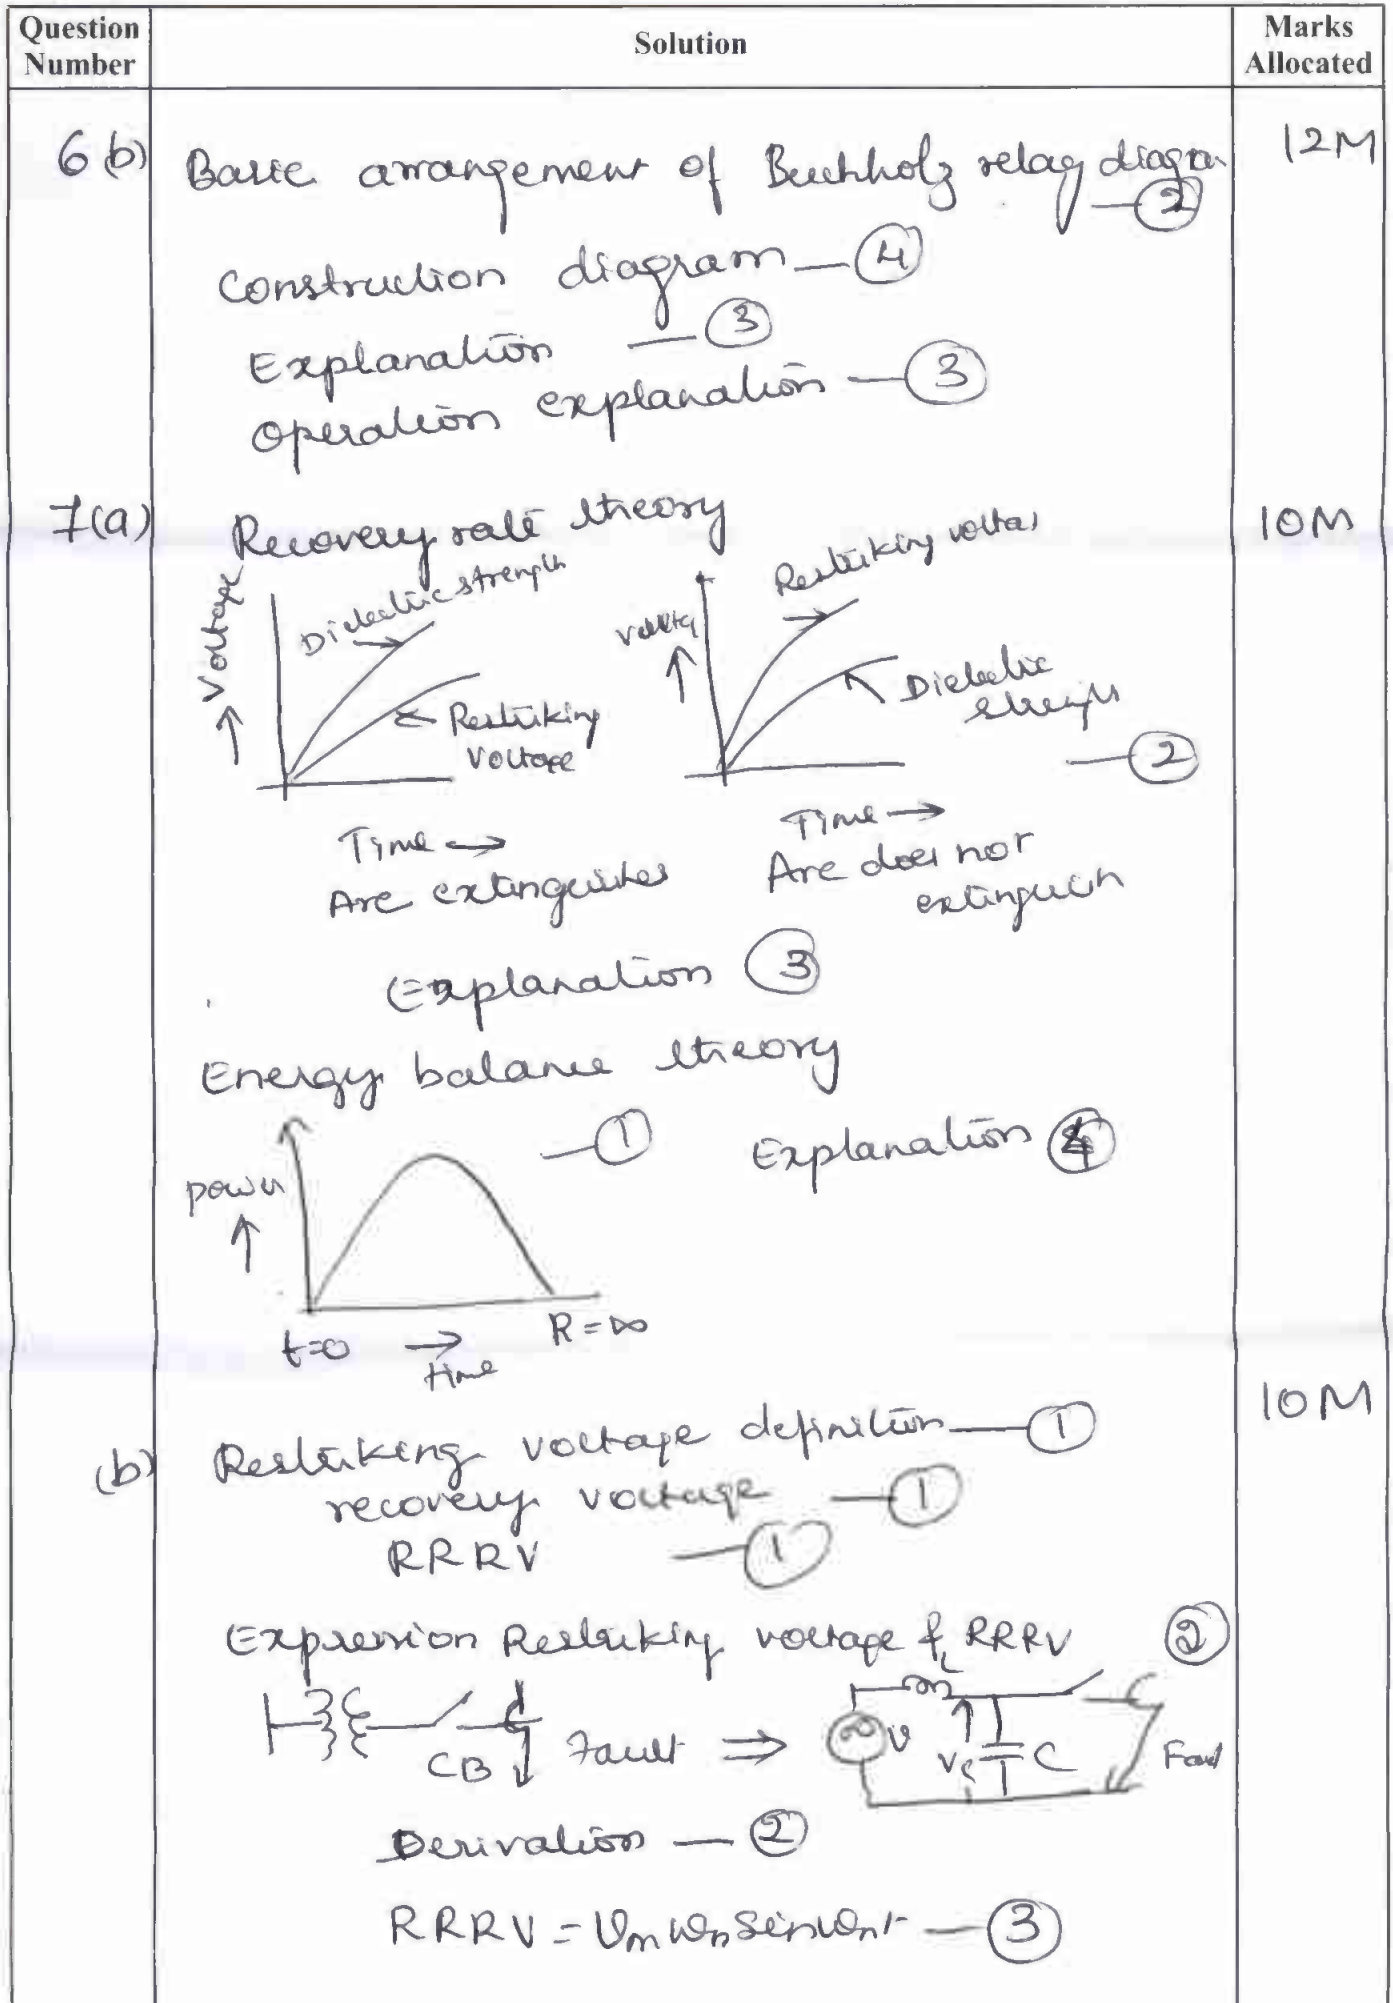 Question Number
Solution
Marks Allocated
6(b)
Basic arrangement of Buchholz relay diagram — 2
12M
Construction diagram — 4
Explanation — 3
Operation explanation — 3
7(a)
Recovery rate theory
10M
Voltage
Dielectric strength
Restriking voltage
Time →
Arc extinguishes
Restriking voltag
Dielectric strength
— 2
Time →
Arc does not extinguish
Explanation 3
Energy balance theory
— 1
Explanation 4
power
t=0
→ time
R = ∞
10M
(b)
Restriking voltage definition — 1
recovery voltage — 1
RRRV — 1
Expression Restriking voltage & RRRV 2
CB
Fault ⇒
L
v
C
Derivation — 2
RRRV = Vm ωn Sin ωnt — 3